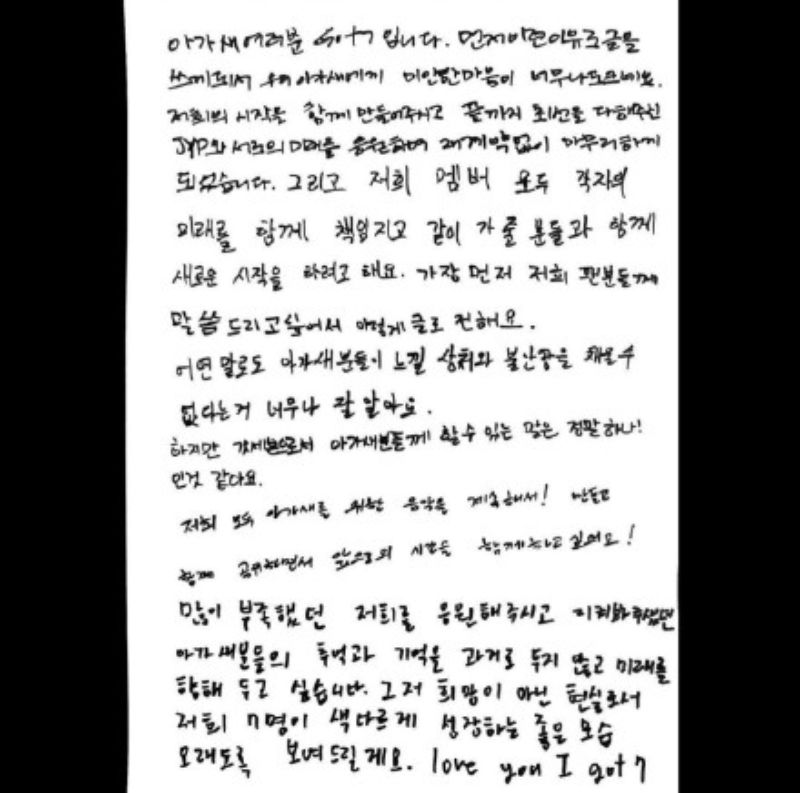 아가새여러분 Got7 입니다. 먼저이런이유로글을
쓰게되서 우리아가새에게 미안한마음이 너무나도드네요.
저희의 시작을 함께 만들어주시고 끝까지 최선을 다해주신
JYP와 서로의 미래를 응원하며 재계약없이 마무리하게
되었습니다. 그리고 저희 멤버 모두 각자의
미래를 함께 책임지고 같이 가 줄 분들과 함께
새로운 시작을 하려고 해요. 가장 먼저 저희 팬분들께
말씀 드리고싶어서 이렇게 글로 전해요.
어떤 말로도 아가새분들이 느낄 상처와 불안감을 채울수
없다는거 너무나 잘 알아요.
하지만 갓세븐으로서 아가새분들께 할수 있는 말은 정말하나!
인것 같아요.
저희 모두 아가새를 위한 음악을 계속해서! 만들고
함께 공유하면서 앞으로의 시간을 함께하고싶어요!
많이 부족했던 저희를 응원해주시고 지켜봐주셨던
아가새분들의 추억과 기억을 과거로 두지 않고 미래를
향해 두고 싶습니다. 그저 희망이 아닌 현실로서
저희 7명이 색다르게 성장하는 좋은 모습
오래도록 보여드릴게요. love you I got7